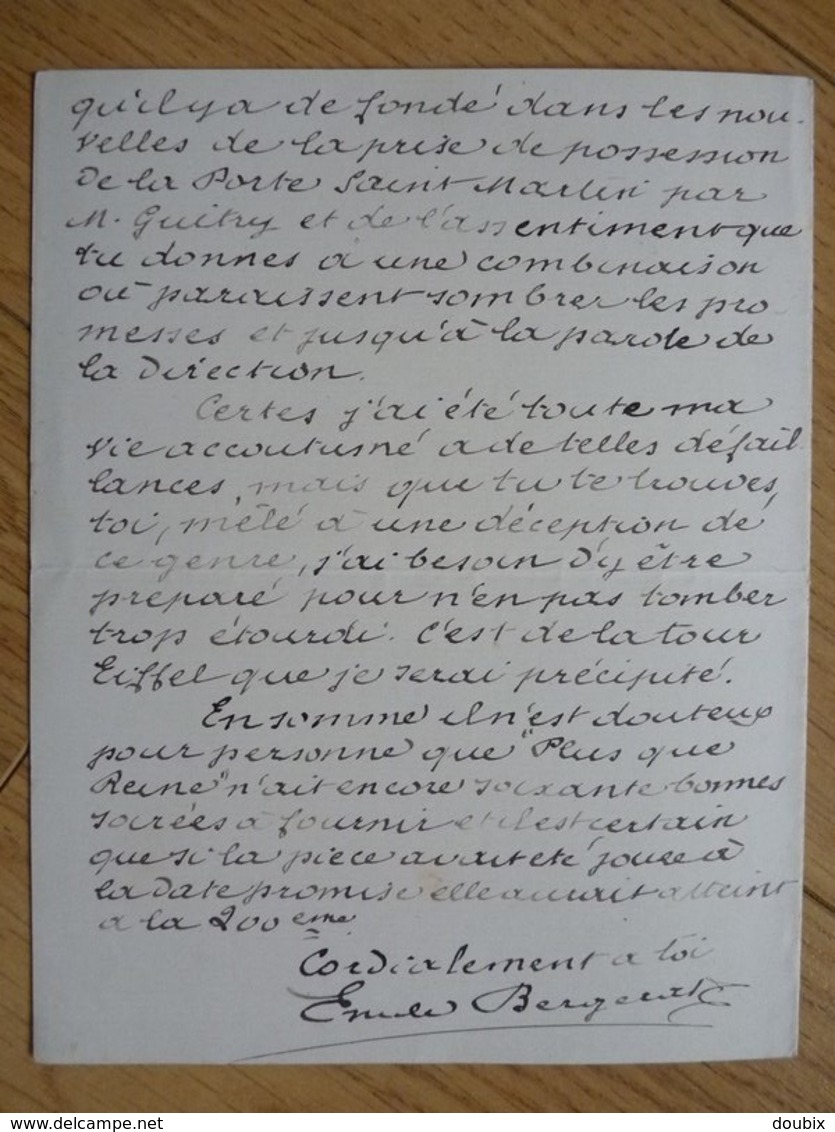 qu'il y a de fondé dans les nou-
velles de la prise de possession
de la Porte Saint Martin par
M. Guitry et de l'assentiment que
tu donnes à une combinaison
où paraissent sombrer les pro
messes et jusqu'à la parole de
la Direction.
Certes j'ai été toute ma
vie accoutumé a de telles défail-
lances, mais que tu te trouves,
toi, mêlé à une déception de
ce genre, j'ai besoin d'y être
préparé pour n'en pas tomber
trop étourdi. C'est de la tour
Eiffel que je serai précipité.
En somme il n'est douteux
pour personne que "Plus que
Reine" n'ait encore soixante bonnes
soirées à fournir et il est certain
que si la pièce avait été jouée à
la date promise elle aurait atteint
a la 200eme
Cordialement a toi
Emile Bergerat
delcampe.net
doubix